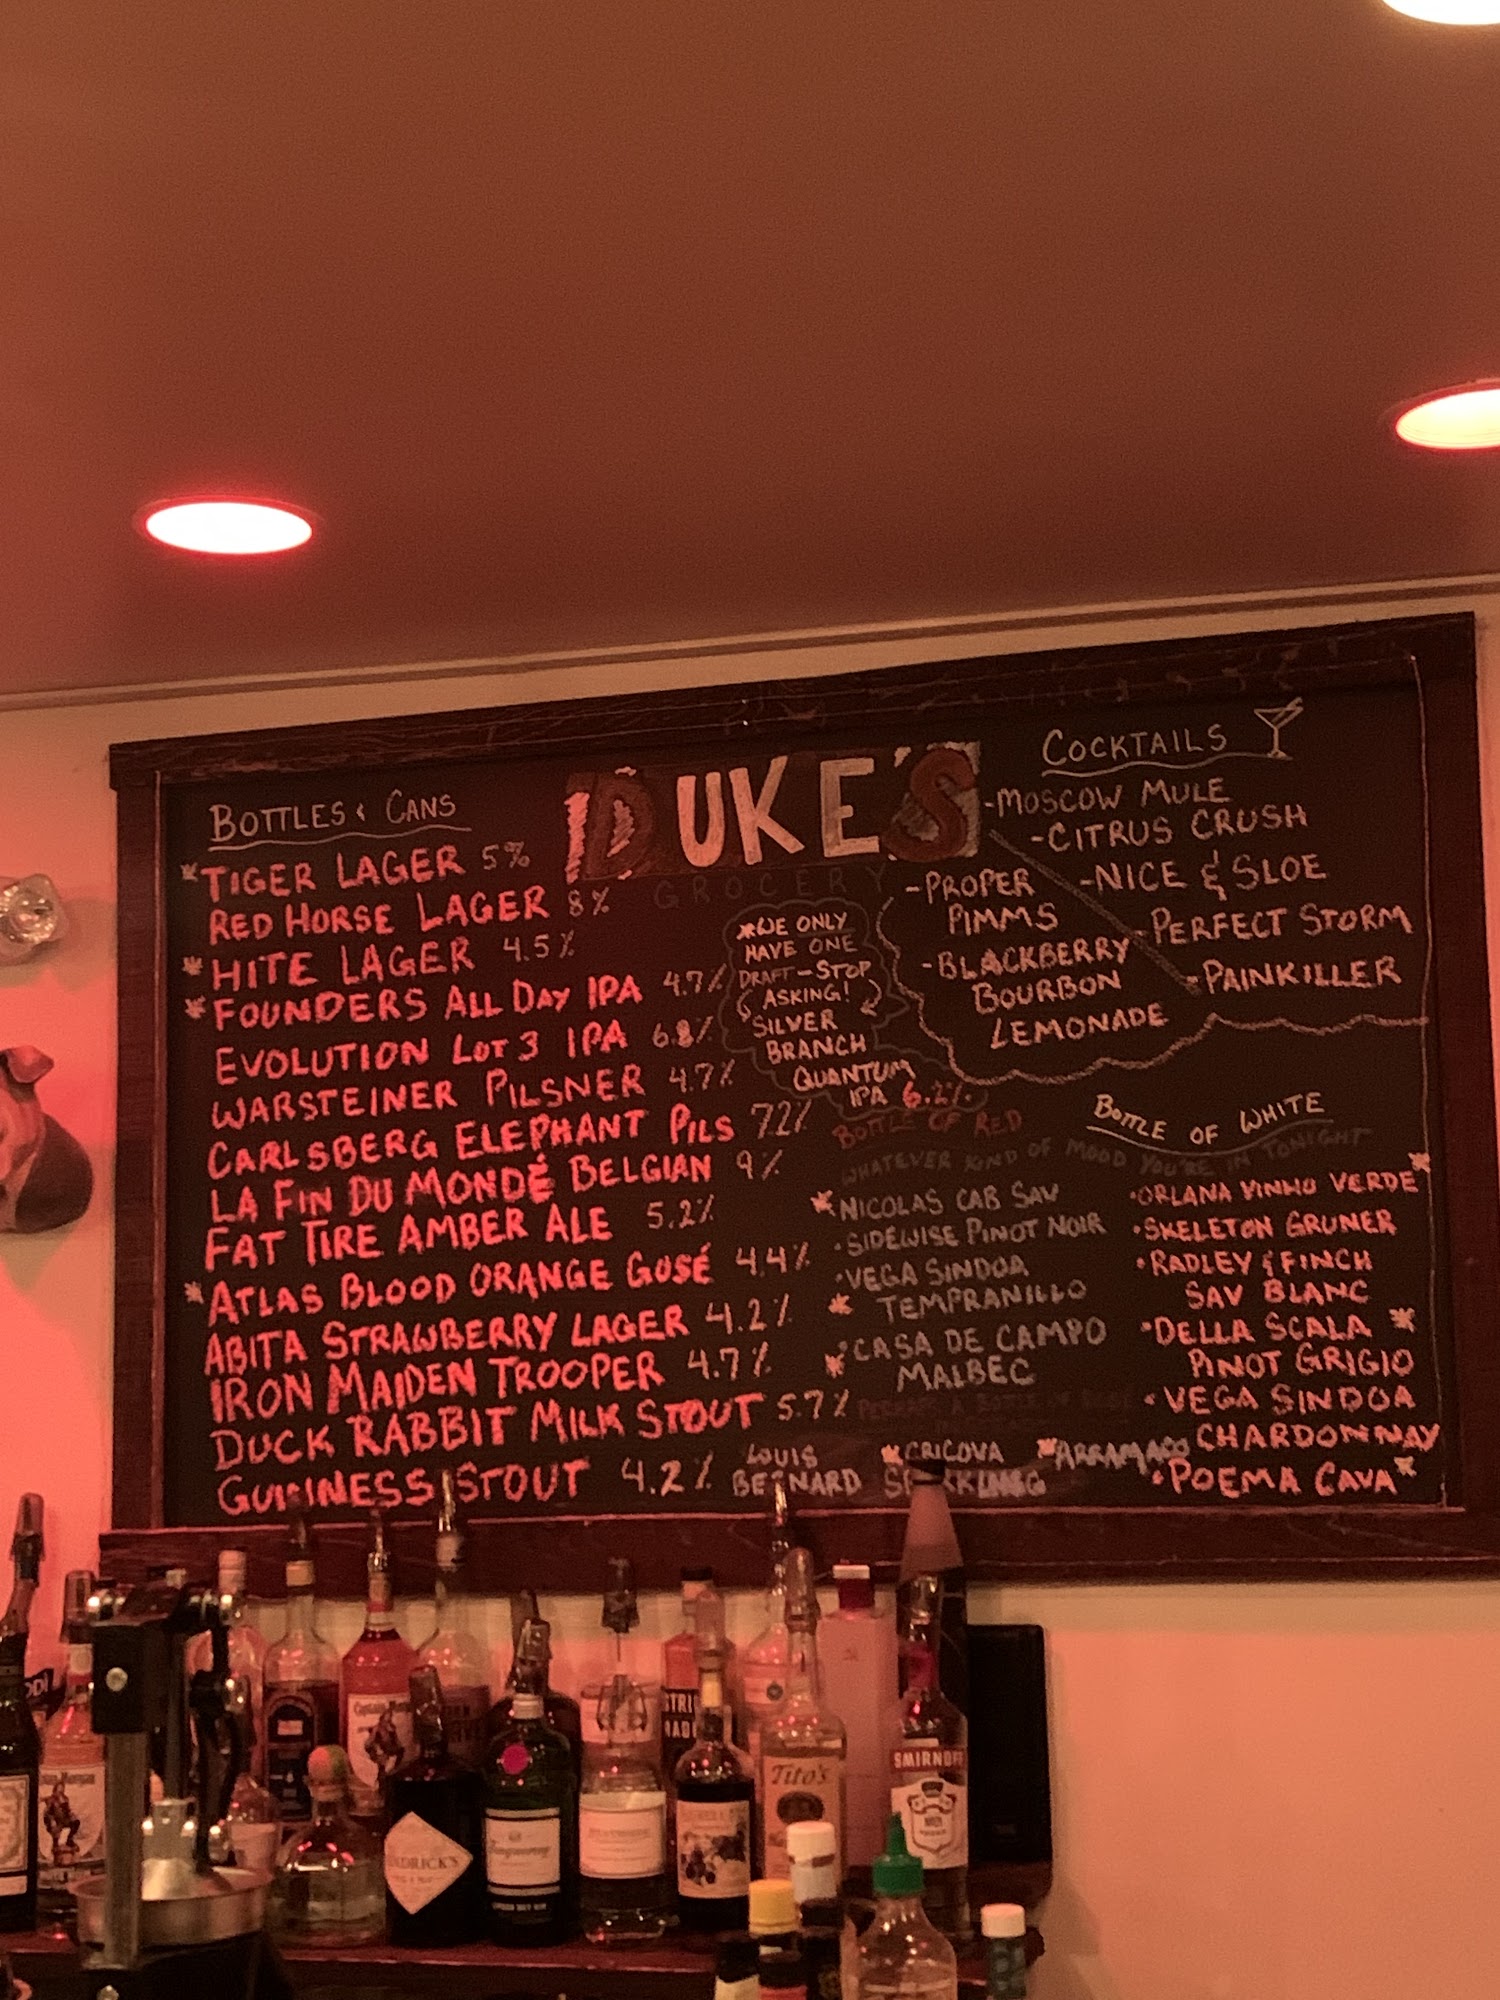 DUKE'S
GROCERY
BOTTLES & CANS
*TIGER LAGER 5%
RED HORSE LAGER 8%
*HITE LAGER 4.5%
*FOUNDERS ALL DAY IPA 4.7%
EVOLUTION LOT 3 IPA 6.8%
WARSTEINER PILSNER 4.7%
CARLSBERG ELEPHANT PILS 7.2%
LA FIN DU MONDÉ BELGIAN 9%
FAT TIRE AMBER ALE 5.2%
*ATLAS BLOOD ORANGE GOSÉ 4.4%
ABITA STRAWBERRY LAGER 4.2%
IRON MAIDEN TROOPER 4.7%
DUCK RABBIT MILK STOUT 5.7%
GUINNESS STOUT 4.2%
*WE ONLY
HAVE ONE
DRAFT-STOP
ASKING!
SILVER
BRANCH
QUANTUM
IPA 6.2%.
COCKTAILS
-MOSCOW MULE
-CITRUS CRUSH
-NICE & SLOE
-PROPER
PIMMS
-PERFECT STORM
-BLACKBERRY
BOURBON
LEMONADE
-PAINKILLER
BOTTLE OF RED
BOTTLE OF WHITE
WHATEVER KIND OF MOOD YOU'RE IN TONIGHT
*NICOLAS CAB SAV
•SIDEWISE PINOT NOIR
•VEGA SINDOA
*TEMPRANILLO
*CASA DE CAMPO
MALBEC
PERHAPS A BOTTLE OF
LOUIS
BERNARD
*CRICOVA
SPARKLING
•ORLANA VINHO VERDE*
•SKELETON GRUNER
•RADLEY & FINCH
SAV BLANC
•DELLA SCALA *
PINOT GRIGIO
•VEGA SINDOA
CHARDONNAY
•POEMA CAVA*
HENDRICK'S
Tanqueray
Tito's
SMIRNOFF